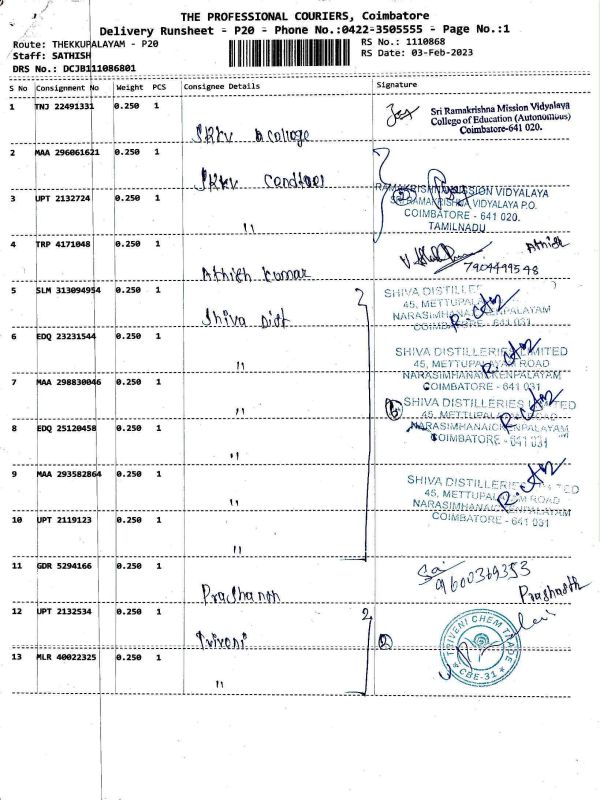 THE PROFESSIONAL COURIERS, Coimbatore
Delivery Runsheet - P20 - Phone No.:0422-3505555 - Page No.:1
Route: THEKKUPALAYAM - P20
RS No.: 1110868
Staff: SATHISH
RS Date: 03-Feb-2023
DRS No.: DCJB111086801
S No Consignment No Weight PCS Consignee Details Signature
1 TNJ 22491331 0.250 1
Sri Ramakrishna Mission Vidyalaya
College of Education (Autonomous)
Coimbatore-641 020.
2 MAA 296061621 0.250 1
RAMAKRISHNA MISSION VIDYALAYA
SRI RAMAKRISHNA VIDYALAYA P.O.
COIMBATORE - 641 020.
TAMILNADU
3 UPT 2132724 0.250 1
"
4 TRP 4171048 0.250 1
Athish Kumar
Athish
7904499548
5 SLM 313094954 0.250 1
Shiva Dist
SHIVA DISTILLE
45, METTUPAL
NARASIMHANAICKENPALAYAM
COIMBATORE - 641 031
6 EDQ 23231544 0.250 1
"
SHIVA DISTILLERIES LIMITED
45, METTUPALAYAM ROAD
NARASIMHANAICKENPALAYAM
COIMBATORE - 641 031
7 MAA 298830046 0.250 1
"
SHIVA DISTILLERIES LIMITED
45, METTUPALAYAM ROAD
NARASIMHANAICKENPALAYAM
COIMBATORE - 641 031
8 EDQ 25120458 0.250 1
"
9 MAA 293582864 0.250 1
"
SHIVA DISTILLERIES LIMITED
45, METTUPALAYAM ROAD
NARASIMHANAICKENPALAYAM
COIMBATORE - 641 031
10 UPT 2119123 0.250 1
"
11 GDR 5294166 0.250 1
Prashanth
Sai
9600369353
Prashanth
12 UPT 2132534 0.250 1
Triveni
2
TRIVENI CHEM TRADE
CBE-31
13 MLR 40022325 0.250 1
"